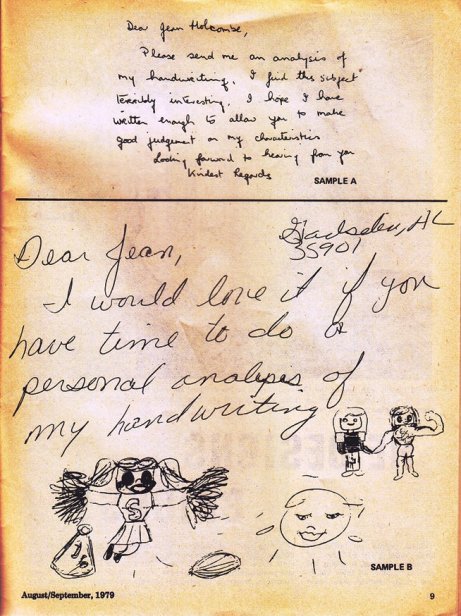 Dear Jean Holcombe,
Please send me an analysis of
my handwriting. I find this subject
terribly interesting. I hope I have
written enough to allow you to make
good judgement on my charateristics
Looking forward to hearing from you
Kindest Regards
SAMPLE A
Gadsden, AL
35901
Dear Jean,
I would love it if you
have time to do a
personal analyses of
my handwriting
S
SAMPLE B
August/September, 1979
9